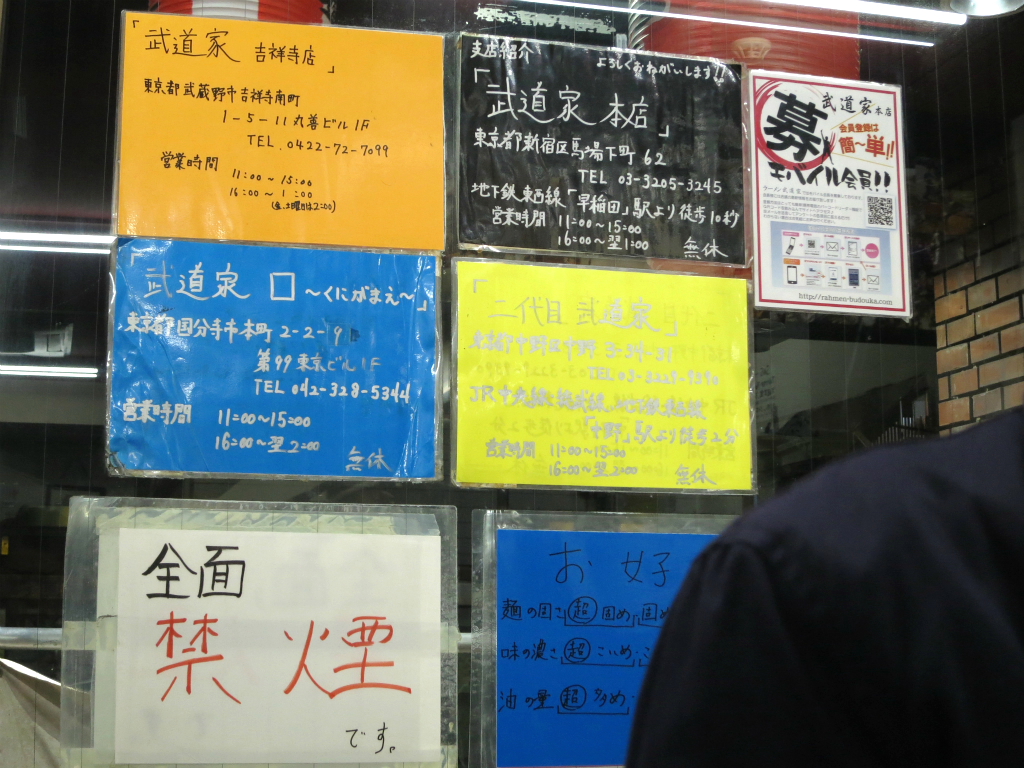 「武道家 吉祥寺店」
東京都武蔵野市吉祥寺南町
1-5-11 丸善ビル1F
TEL. 0422-72-7099
営業時間
11:00〜15:00
16:00〜1:00
(金、土曜日は2:00)
支店紹介 よろしくおねがいします!!
「武道家 本店」
東京都新宿区馬場下町62
TEL 03-3205-3245
地下鉄東西線「早稲田」駅より徒歩10秒
営業時間 11:00〜15:00
16:00〜翌1:00 無休
武道家本店
募
会員登録は
簡〜単!!
モバイル会員!!
http://rahmen-budouka.com
「武道家 口 〜くにがまえ〜」
東京都国分寺市本町2-2-19
第99東京ビル1F
TEL 042-328-5344
営業時間 11:00〜15:00
16:00〜翌2:00
無休
「二代目 武道家」
東京都中野区中野
TEL 03-3229-
JR中央線、総武線、地下鉄東西線
「中野」駅より徒歩2分
営業時間 11:00〜15:00
16:00〜翌2:00 無休
全面
禁煙
です。
お好
麺の固さ 超固め・固め
味の濃さ 超こいめ・
油の量 超多め・